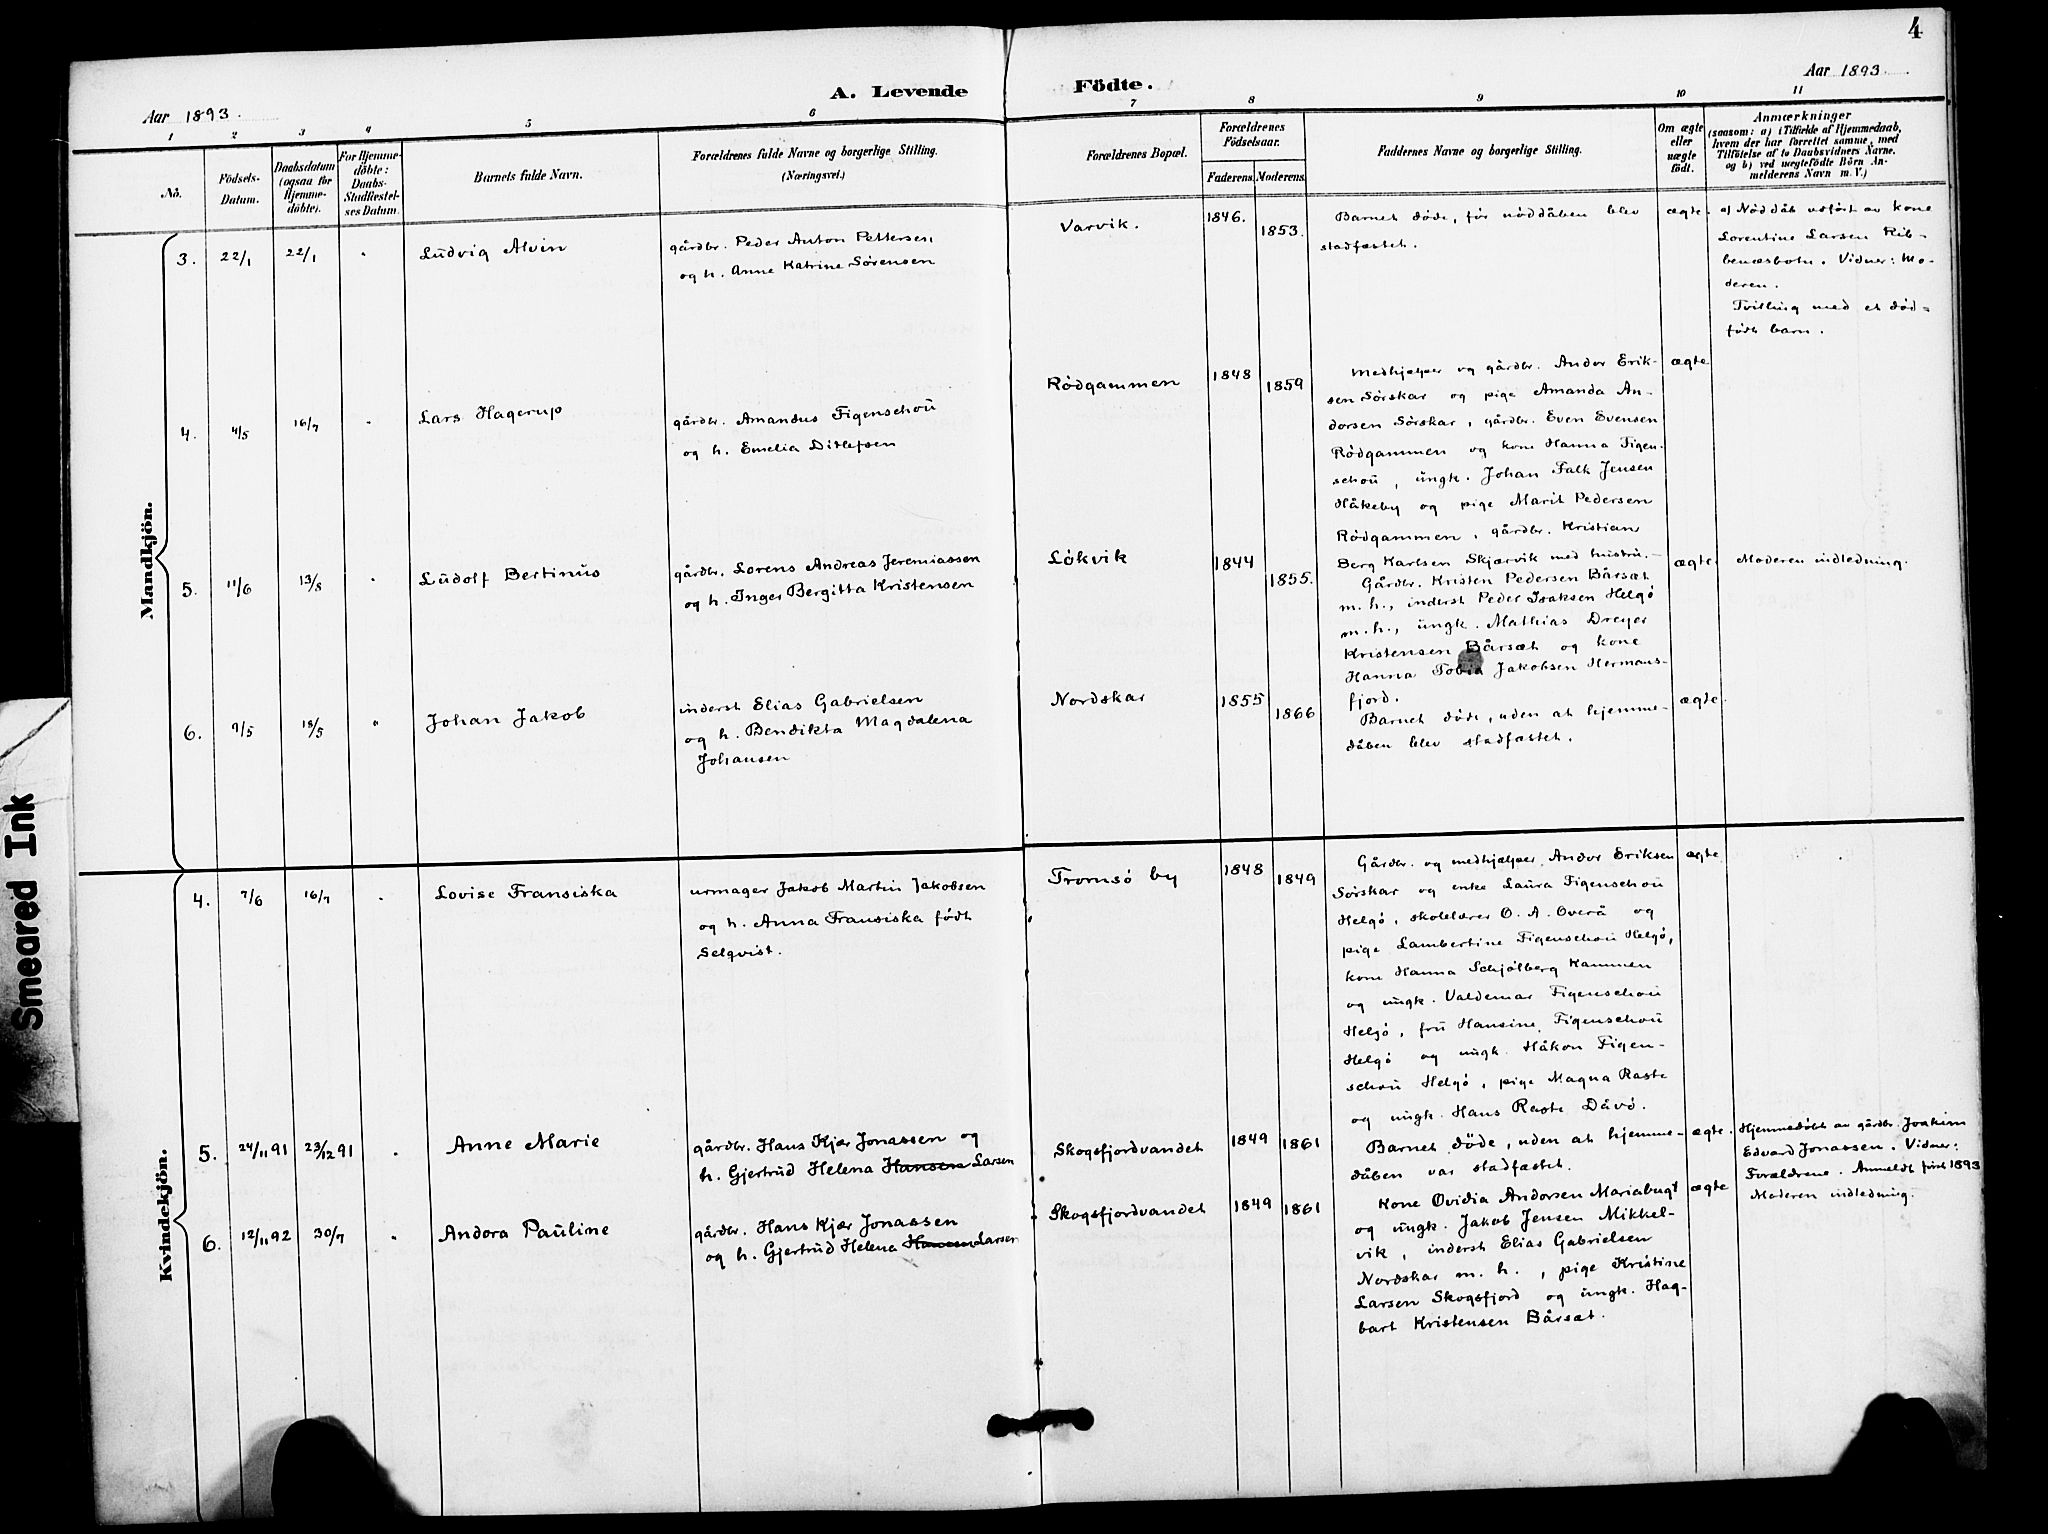 4
Aar 1893.
A. Levende Födte.
Aar 1893.
1 2 3 4 5 6 7 8 9 10 11
No.
Födsels-
Datum.
Daabsdatum
(ogsaa for
Hjemme-
döbte).
For Hjemme-
döbte:
Daabs-
Stadfæstel-
ses Datum.
Barnets fulde Navn.
Forældrenes fulde Navne og borgerlige Stilling.
(Næringsvei.)
Forældrenes Bopæl.
Forældrenes
Födselsaar.
Faderens. Moderens.
Faddernes Navne og borgerlige Stilling.
Om ægte
eller
uægte
födt.
Anmærkninger
(saasom: a) i Tilfælde af Hjemmedaab,
hvem der har forrettet samme, med
Tilföielse af to Daabsvidners Navne.
og b) ved uægtefödte Börn An-
melderens Navn m. V.)
Mandkjön.
3. 22/1 22/1 " Ludvig Alvin
gårdbr. Peder Anton Pettersen
og h. Anne Katrine Sørensen
Varvik. 1846. 1853.
Barnet døde, før nøddåben blev
stadfæstet.
ægte.
a) Nøddåb udført av kone
Lorentine Larsen Rib-
benæsbotn. Vidner: Mo-
deren.
Tvilling med et død-
født barn.
4. 4/5 16/7 " Lars Hagerup
gårdbr. Amandus Figenschou
og h. Emelia Ditlefsen
Rødgammen 1848 1859
Medhjælper og gårdbr. Andor Erik-
sen Sørskar og pige Amanda An-
dorsen Sørskar, gårdbr. Even Evensen
Rødgammen og kone Hanna Figen-
schou, ungk. Johan Falk Jensen
Håkeby og pige Marit Pedersen
Rødgammen, gårdbr. Kristian
Berg Karlsen Skjærvik med hustru.
ægte
5. 11/6 13/8 " Ludolf Bertinus
gårdbr. Lorens Andreas Jeremiassen
og h. Inger Bergitta Kristensen
Løkvik 1844 1855.
Gårdbr. Kristen Pedersen Bårsæt
m. h., inderst Peder Isaksen Helgø
m. h., ungk. Mathias Dreyer
Kristensen Bårsæt og kone
Hanna Tobia Jakobsen Hermans-
fjord.
ægte.
Moderen indledning.
6. 9/5 18/5 " Johan Jakob
inderst Elias Gabrielsen
og h. Bendikta Magdalena
Johansen
Nordskar 1855 1866
Barnet døde, uden at hjemme-
dåben blev stadfæstet.
ægte.
Kvindekjön.
4. 7/6 16/7 " Lovise Fransiska
urmager Jakob Martin Jakobsen
og h. Anna Fransiska født
Selqvist.
Tromsø by 1848 1849
Gårdbr. og medhjælper Andor Eriksen
Sørskar og enke Laura Figenschou
Helgø, skolelærer O. A. Overå og
pige Lambertine Figenschou Helgø,
kone Hanna Schjølberg Kammen
og ungk. Valdemar Figenschou
Helgø, fru Hansine Figenschou
Helgø og ungk. Håkon Figen-
schou Helgø, pige Magna Raste
og ungk. Hans Raste Dåvø.
ægte
5. 24/11 91 23/12 91 " Anne Marie
gårdbr. Hans Kjær Jonassen og
h. Gjertrud Helena Hansen Larsen
Skogsfjordvandet 1849 1861
Barnet døde, uden at hjemme-
dåben var stadfæstet.
ægte.
Hjemmedøbt av gårdbr. Joakim
Edvard Jonassen. Vidner:
Forældrene. Anmeldt først 1893
6. 12/11 92 30/7 " Andora Pauline
gårdbr. Hans Kjær Jonassen
og h. Gjertrud Helena Hansen Larsen
Skogsfjordvandet 1849 1861
Kone Ovidia Andorsen Mariabugt
og ungk. Jakob Jensen Mikkel-
vik, inderst Elias Gabrielsen
Nordskar m. h., pige Kristine
Larsen Skogsfjord og ungk. Hag-
bart Kristensen Bårsæt.
ægte
Moderen indledning.
Smeared Ink